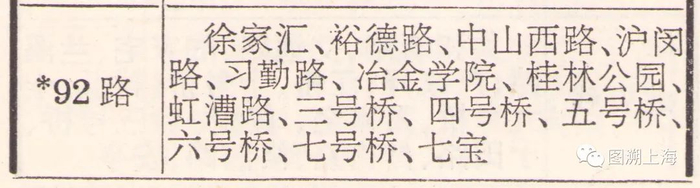 *92路
徐家汇、裕德路、中山西路、沪闵
路、习勤路、冶金学院、桂林公园、
虹漕路、三号桥、四号桥、五号桥、
六号桥、七号桥、七宝
图溯上海